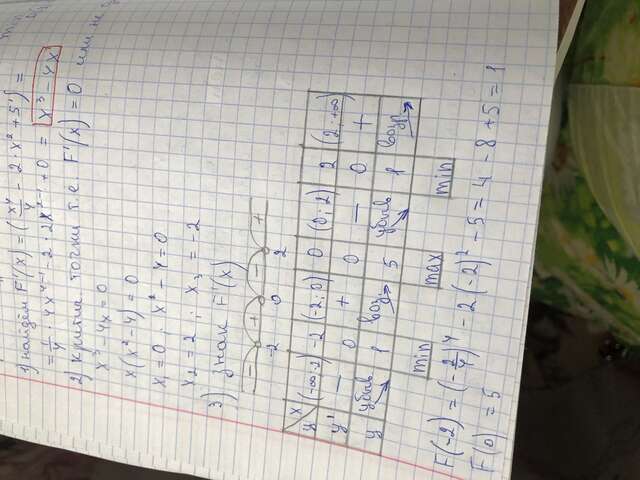 1) найдём F'(x) = (x⁴/4 - 2·x² + 5') =
= 1/4 · 4x⁴⁻¹ - 2·2x²⁻¹ + 0 = x³ - 4x
2) критич. точки т.е. F'(x) = 0 или не
x³ - 4x = 0
x(x² - 4) = 0
x₁ = 0 ; x² - 4 = 0
x₂ = 2 ; x₃ = -2
3) Знак F'(x)
- + - +
-2 0 2
x (-∞;-2) -2 (-2;0) 0 (0;2) 2 (2;+∞)
y
y' — 0 + 0 — 0 +
y убыв 1 воз. 5 убыв 1 возр.
min max min
F(-2) = (-2/4)⁴ - 2(-2)² - 5 = 4 - 8 + 5 = 1
F(0) = 5